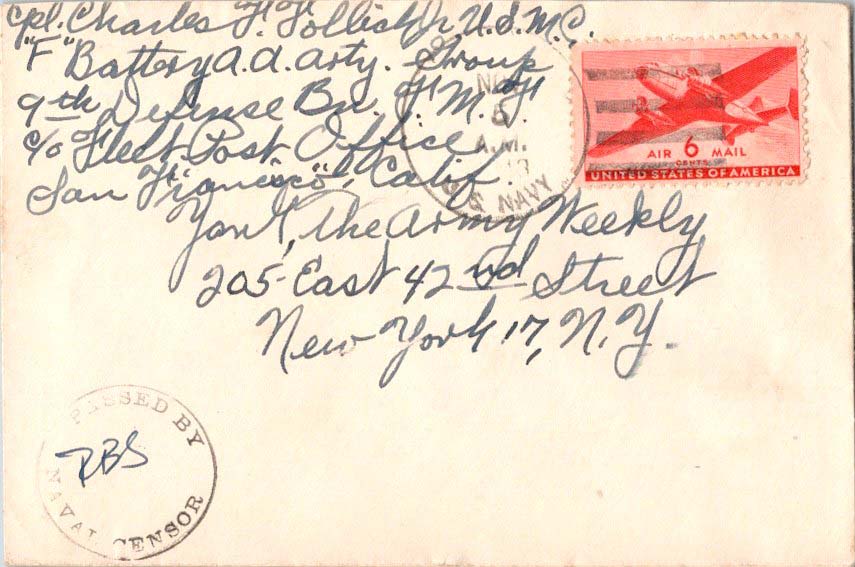 Cpl. Charles F. Follish Jr U.S.M.C.
"F" Battery a.a. arty. Group
9th Defense Bn. F.M.F
c/o Fleet Post Office
San Francisco, Calif.
Yank, The Army Weekly
205-East 42nd Street
New York 17, N.Y.
NOV
5
A.M.
U.S. NAVY
AIR 6 MAIL
CENTS
UNITED STATES OF AMERICA
PASSED BY
RBS
NAVAL CENSOR